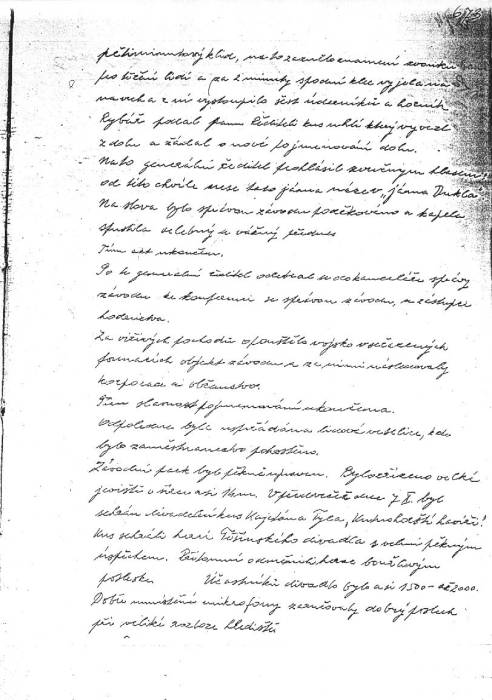 673
pětiminutový klid, na to zaznělo znamení zvonku
pro těžení lidí a za 2 minuty spodní klec vyjela na
navrch a z ní vystoupilo šest úderníků a horník
Rybář podal panu řediteli kus uhlí který vyvezl
z dolu a žádal o nové pojmenování dolu.
Na to generální ředitel prohlásil zvučným hlasem:
od této chvíle nese tato jáma název „jáma Dukla"
Na slova bylo správou závodu poděkováno a kapela
spustila velebný a vážný přednes
Tím akt ukončen.
Po te generální ředitel odebral se do kanceláře správy
závodu ke konferenci se správou závodu, a zástupce
hodnictva.
Za vířivých pochodů opouštělo vojsko v sečkených
formacích objekt závodu a za nimi následovaly
korporace a občanstvo.
Tím slavnost pojmenování ukončena.
Odpoledne byla uspořádána lidová veselice, kde
bylo zaměstnanectvo pohoštěno.
Závodní park byl pěkně upraven. Bylo zřízeno velké
jeviště o šířce asi 14m. V předvečer dne 7. X. byl
sehrán divadelní kus Kajetána Tyla, Kutnohorští havíři!
Kus sehráli herci Těšínského divadla s velmi pěkným
úspěchem. Přítomní odměnili herce bouřlivým
potleskem Účastníků divadla bylo asi 1500 - až 2000.
Dobře umístěné mikrofony zaručovaly dobrý poslech
při veliké rozloze hlediště